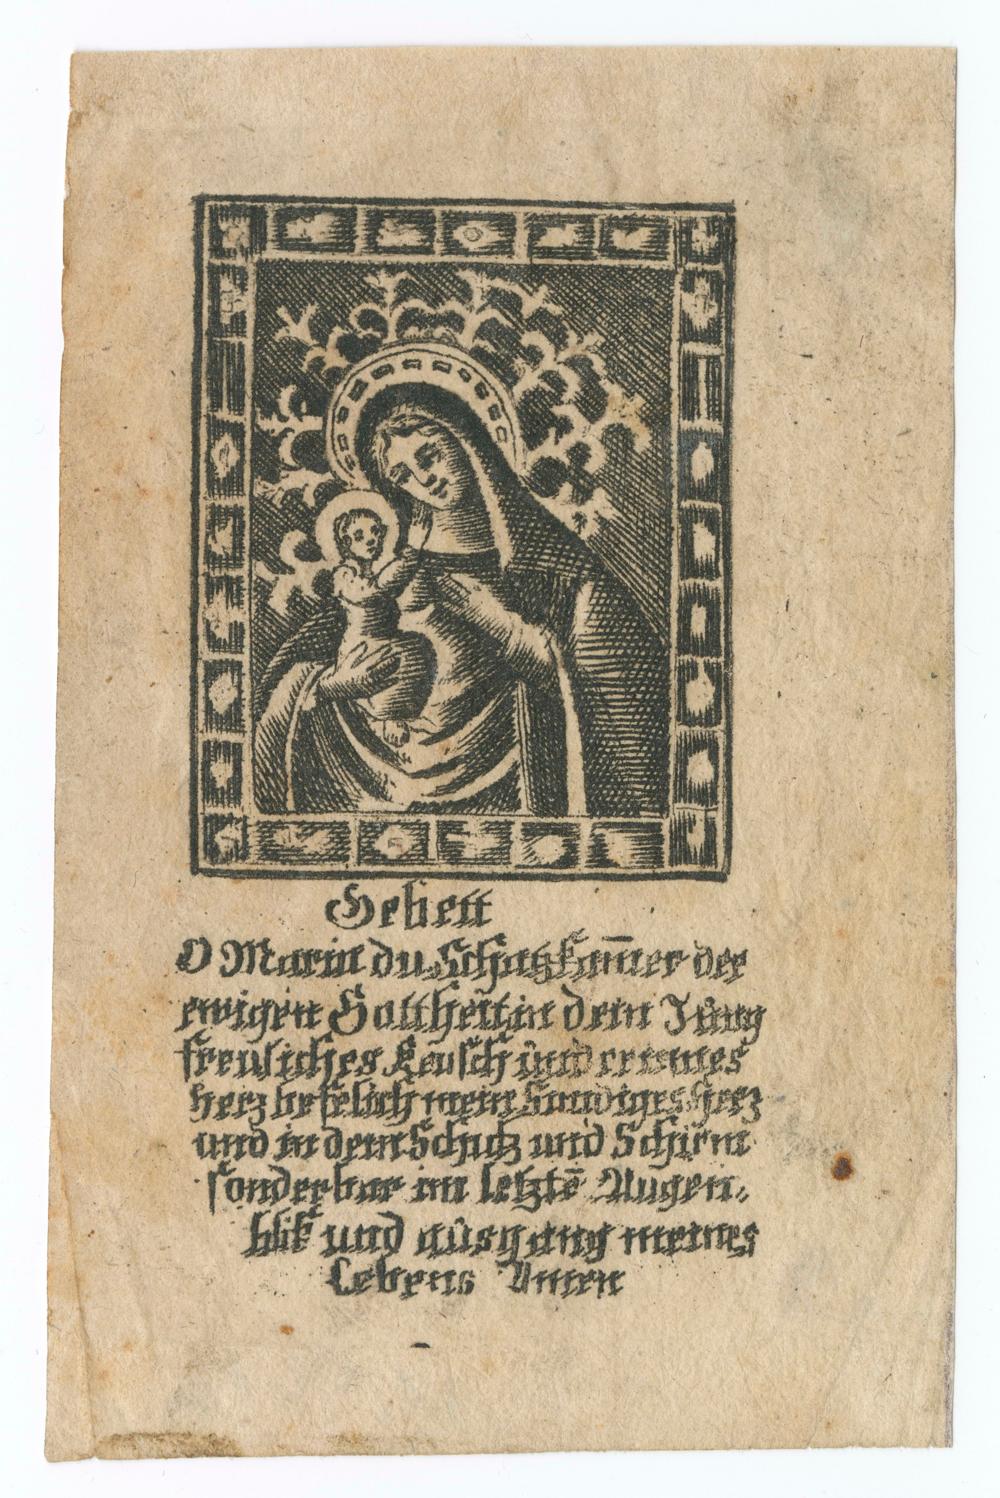 Gebett
O Maria du Schatzkam̄er der
ewigen Gottheit in dein Jûng
freuliches Keusch ûnd reines
herz befelich mein Sundiges herz
und in dein Schutz und Schirm
sonderbar im letztē Augen,
blik und aûsgang meines
Lebens Amen